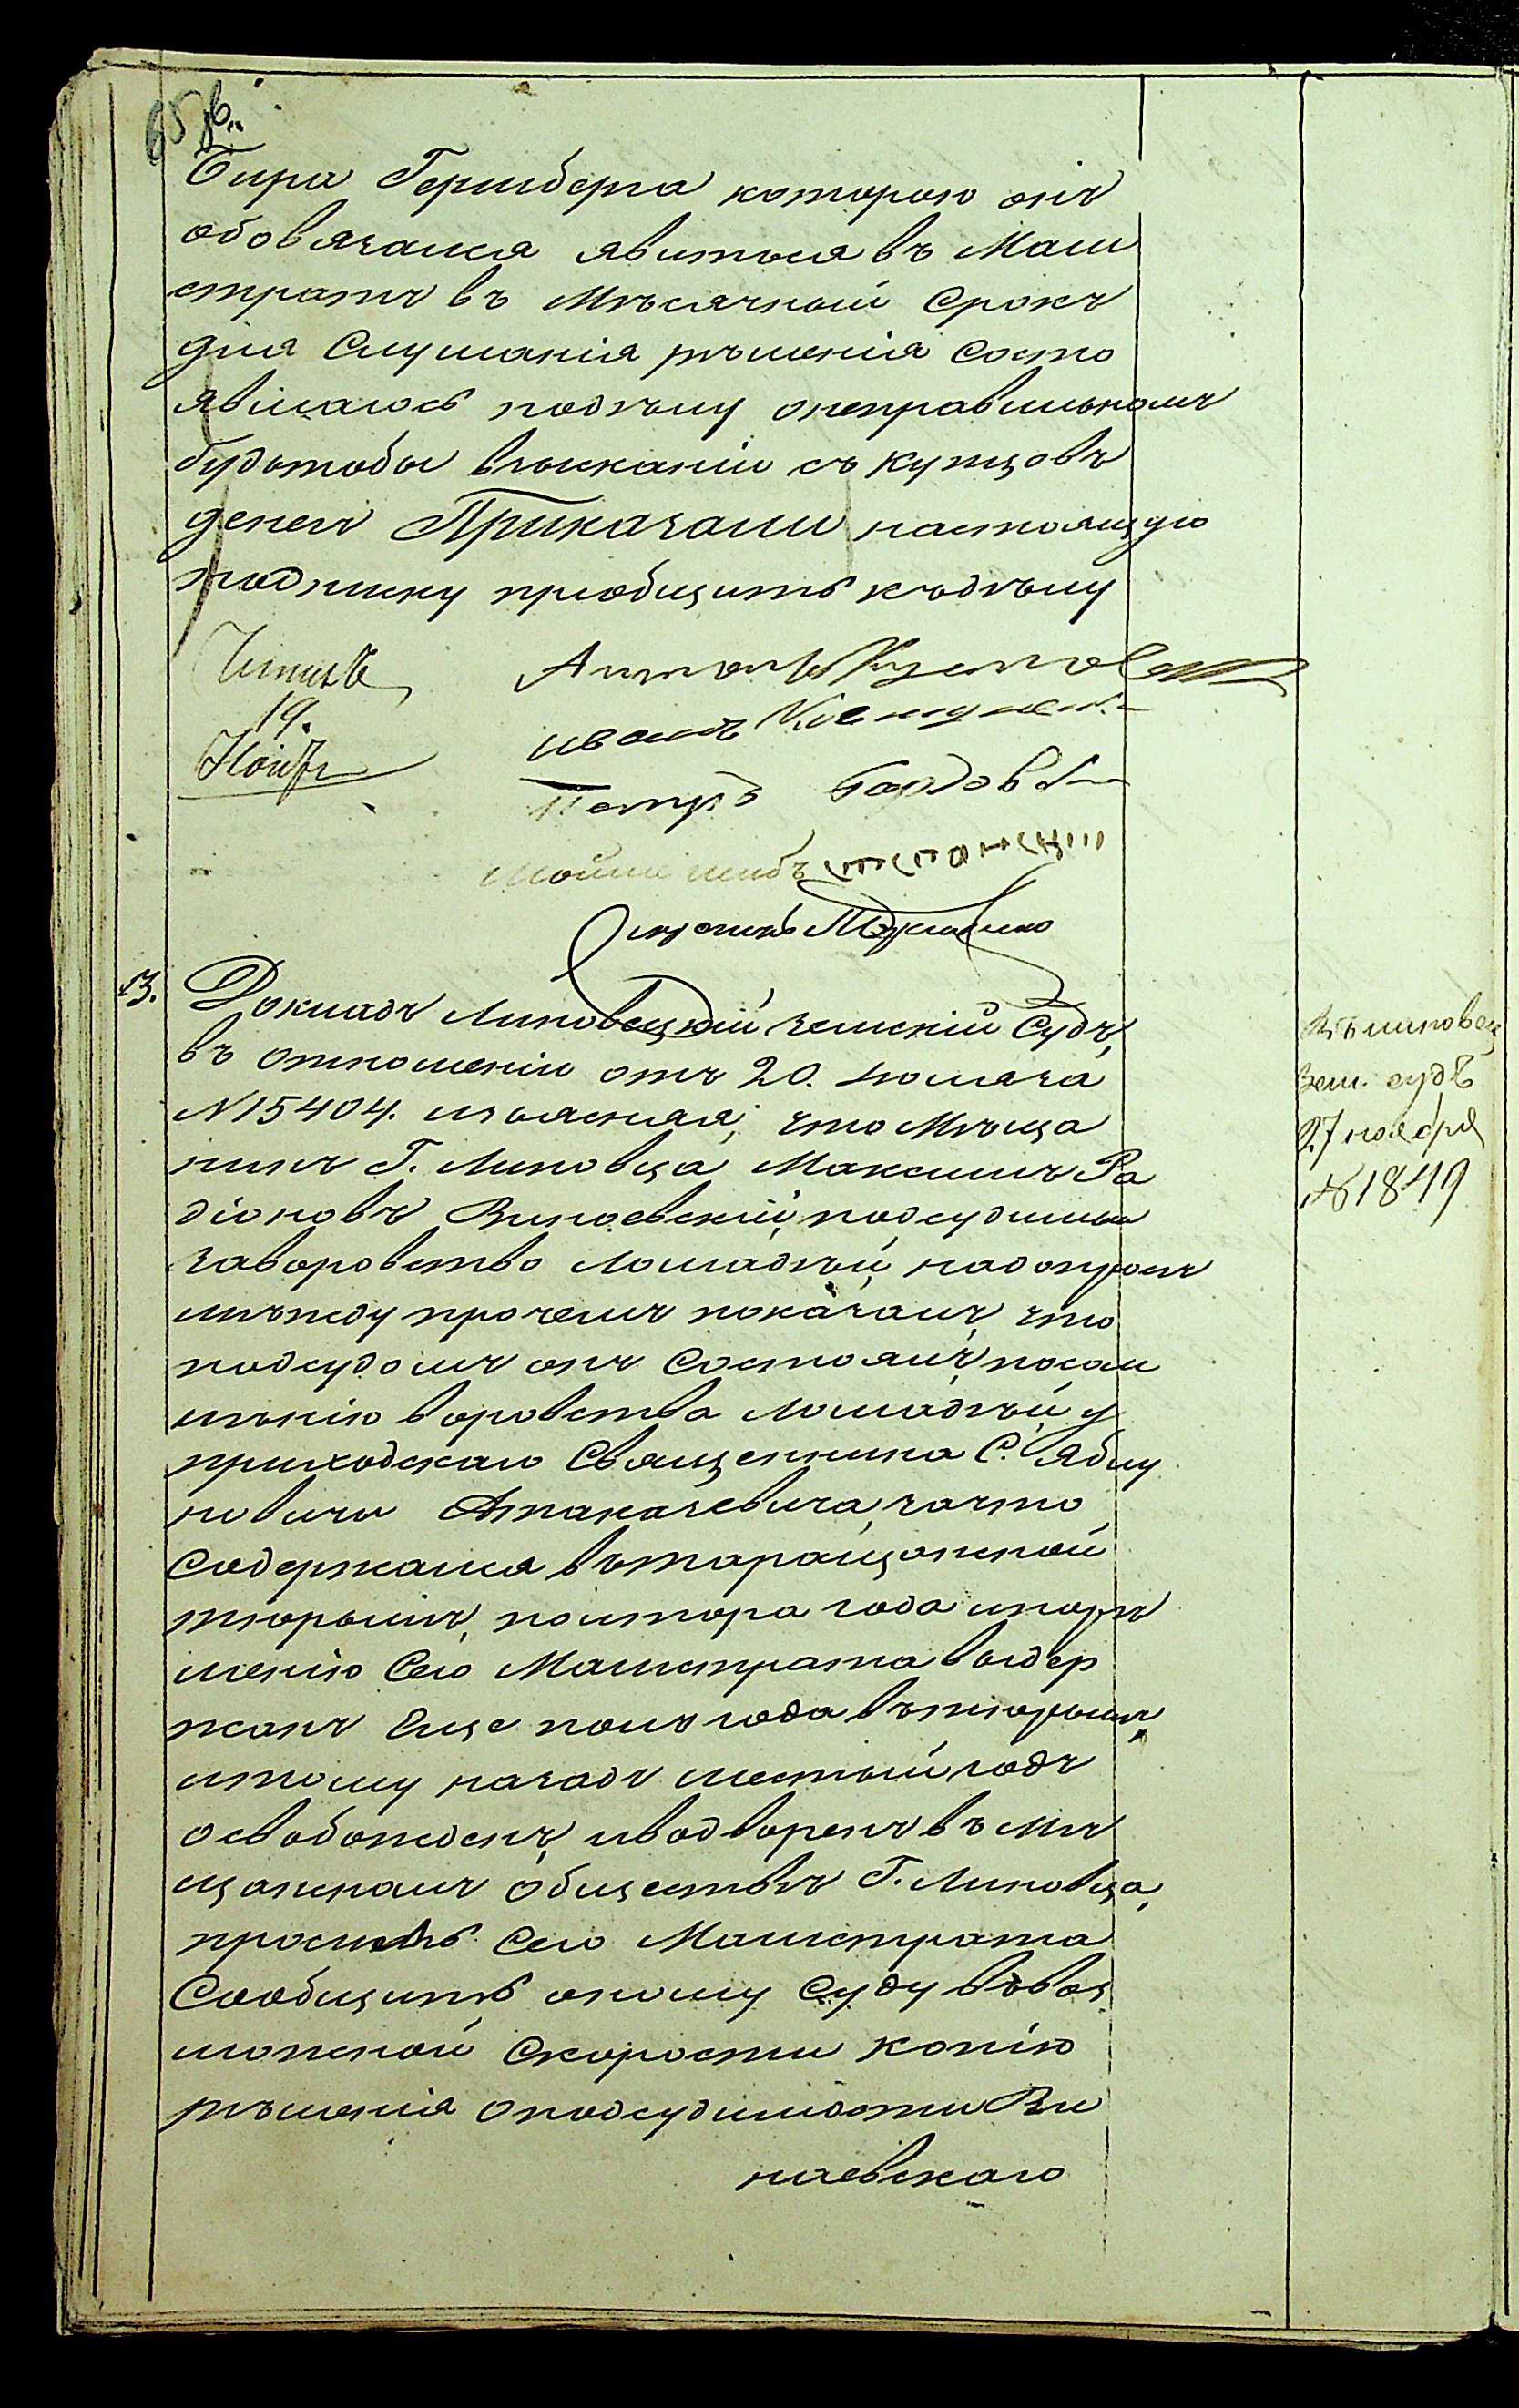 Бира Гершберга которою онъ
обовязался явиться въ Маги
стратъ въ Мѣсячный Срокъ
для Слушанія рѣшенія Состо
явшагось подѣлу онеправильномъ
будьтобы взысканіи съ купцовъ
денегъ Приказали настоящую
подписку пріобщить къдѣлу
19.
Иванъ
Петръ
13.
Докладъ Липовецкій земскій Судъ,
въ отношеніи отъ 20.
N 15404. изъясняя, что Мѣща
нинъ Г. Липовца Максимъ Ра
діоновъ Виноевскій, подсудимый
заворовство лошадѣй, надопросѣ
мѣжду прочемъ показалъ, что
подсудомъ онъ Состоялъ, посом
нѣнію воровства лошадѣй, у
приходскаго Священника С. Яблу
новици Атаназевича, зачто
Содержался вътаращанской
тюрьмѣ, полтора года ипорѣ
шенію Сего Магистрата выдер
жанъ Еще полъ года вътюрьмѣ,
итому назадъ шестый годъ
освобожденъ, иводворенъ въ Мѣ
щанскомъ обществѣ Г. Липовца,
проситъ Сего Магистрата
Сообщить оному Суду въвоз
можной Скорости копію
рѣшенія оподсудимости Ви
наевскаго
Въ липовец
Зем. судъ
27 ноября
№ 1849